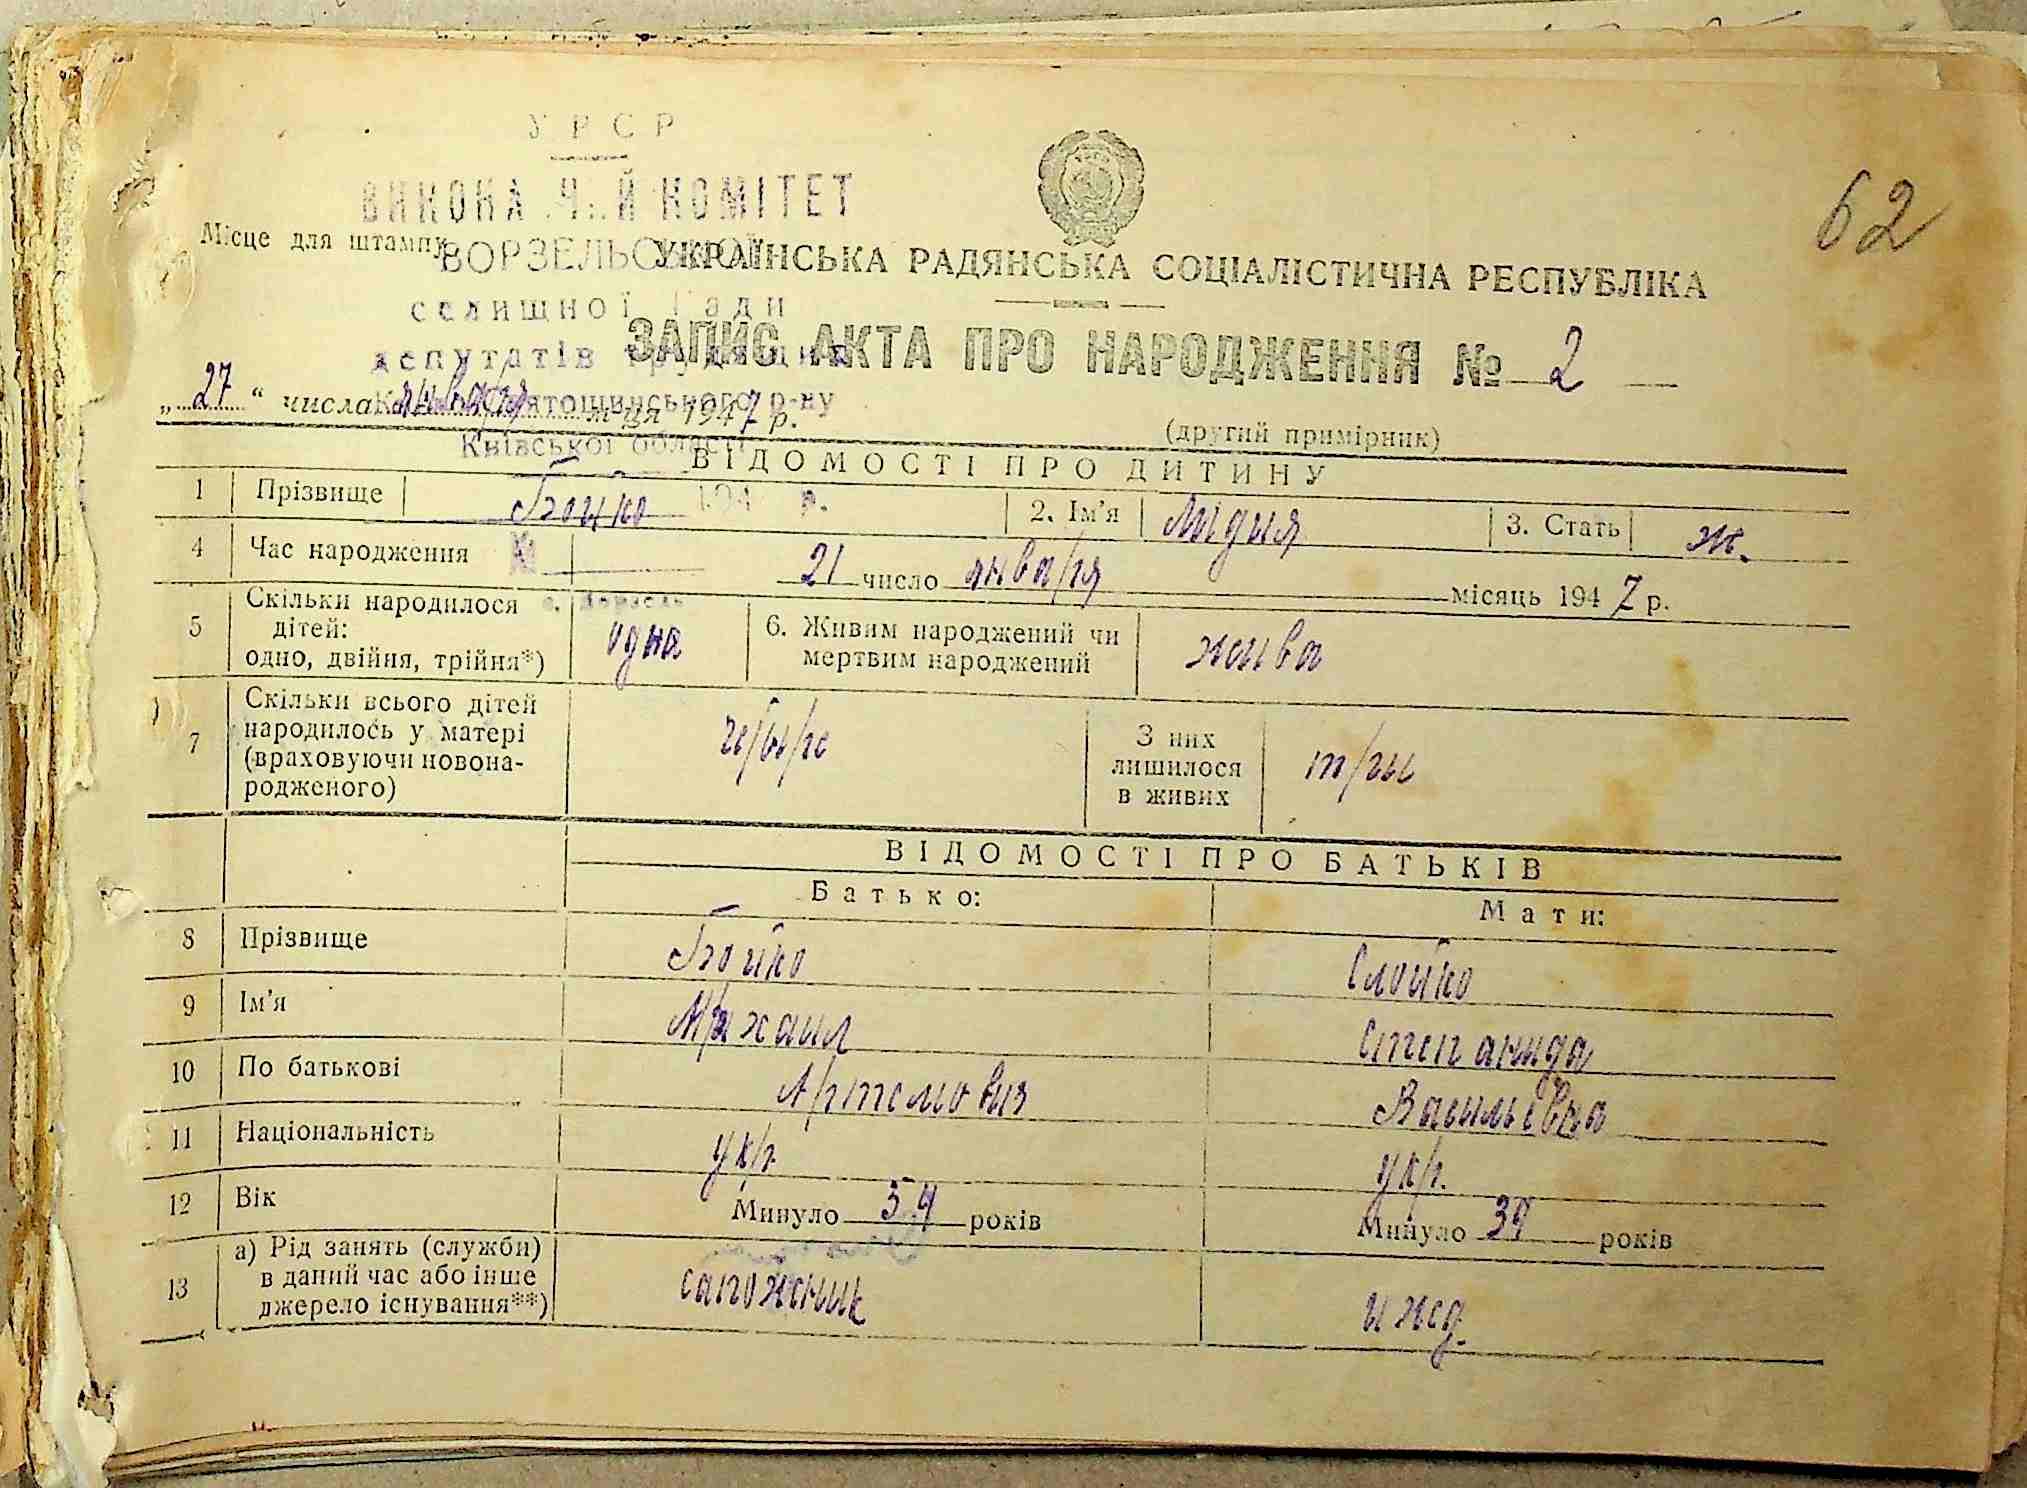 У Р С Р
62
КОМІТЕТ
Місце для штампу
ВОРЗЕЛЬСЬКОЇ
УКРАЇНСЬКА РАДЯНСЬКА СОЦІАЛІСТИЧНА РЕСПУБЛІКА
селищної Ради
ЗАПИС АКТА ПРО НАРОДЖЕННЯ № 2
депутатів трудящих
„27“ числа января м-ця 1947 р.
Святошинського р-ну
(другий примірник)
Київської області
ВІДОМОСТІ ПРО ДИТИНУ
1 Прізвище Бойко 194 р. 2. Ім'я Лидия 3. Стать ж.
4 Час народження № 21 число января місяць 1947 р.
с. Ворзель
5 Скільки народилося дітей: одно, двійня, трійня*) одна 6. Живим народжений чи мертвим народжений жива
7 Скільки всього дітей народилось у матері (враховуючи новонародженого) З них лишилося в живих три
ВІДОМОСТІ ПРО БАТЬКІВ
Батько: Мати:
8 Прізвище Бойко Слойко
9 Ім'я Михаил Степанида
10 По батькові Артемович Васильевна
11 Національність укр. укр.
12 Вік Минуло 54 років Минуло 39 років
13 а) Рід занять (служби) в даний час або інше джерело існування**) сапожник ижд.